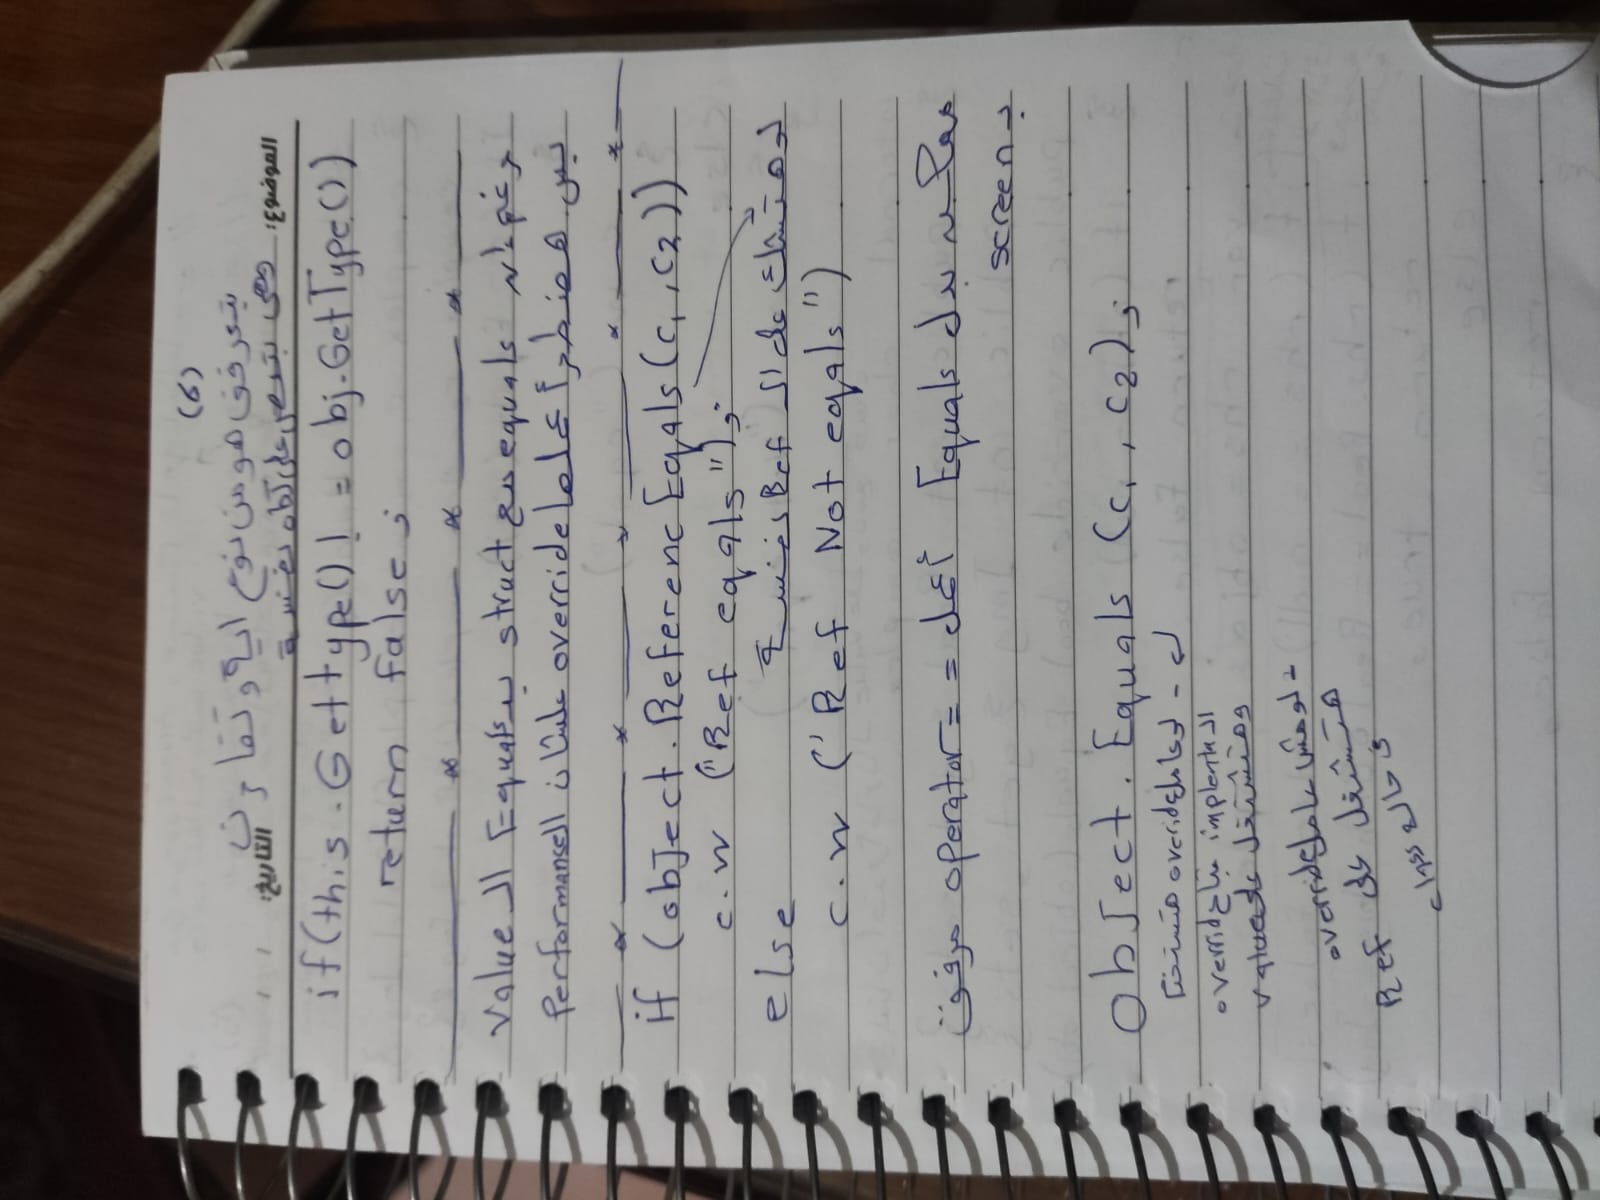 (6)
بتعرفني هو من نوع اية وتقارن
وهى بتبص على آلات نفسة
الموضوع: التاريخ: / /
if(this.GetType()! = obj.GetType())
return false;
رغم ان equals مع struct بـ Equals الـ value
بس هضطر أعملها override علشان الـ performanse
if (object.ReferencEqals(c1,c2))
c.w ("Ref eqals");
لو هتشك على الـ Ref نفسة
else
c.w ("Ref Not eqals")
ممكن بدل Equals أعمل operator== مرفق
بـ screen
object.Equals (c1, c2);
- لو عامل override هتستخدم
الـ implenta بتاع override
وهتشتغل على value
- لو مش عامل override
هتشتغل على Ref
فى حالة class